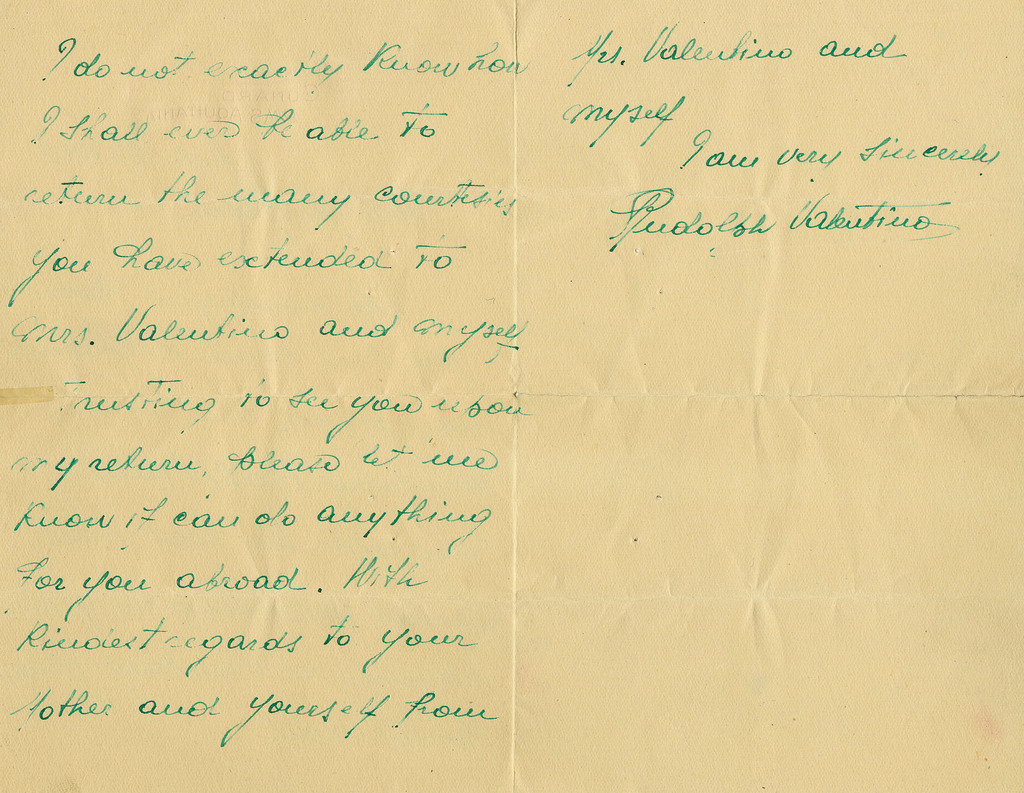 I do not exactly Know how
I shall ever be able to
return the many courtesies
you have extended to
Mrs. Valentino and myself,
Trusting to see you upon
my return, please let me
Know if can do anything
For you abroad. With
Kindest regards to your
Mother and yourself from
Mrs. Valentino and
myself
I am very sincerely
Rudolph Valentino